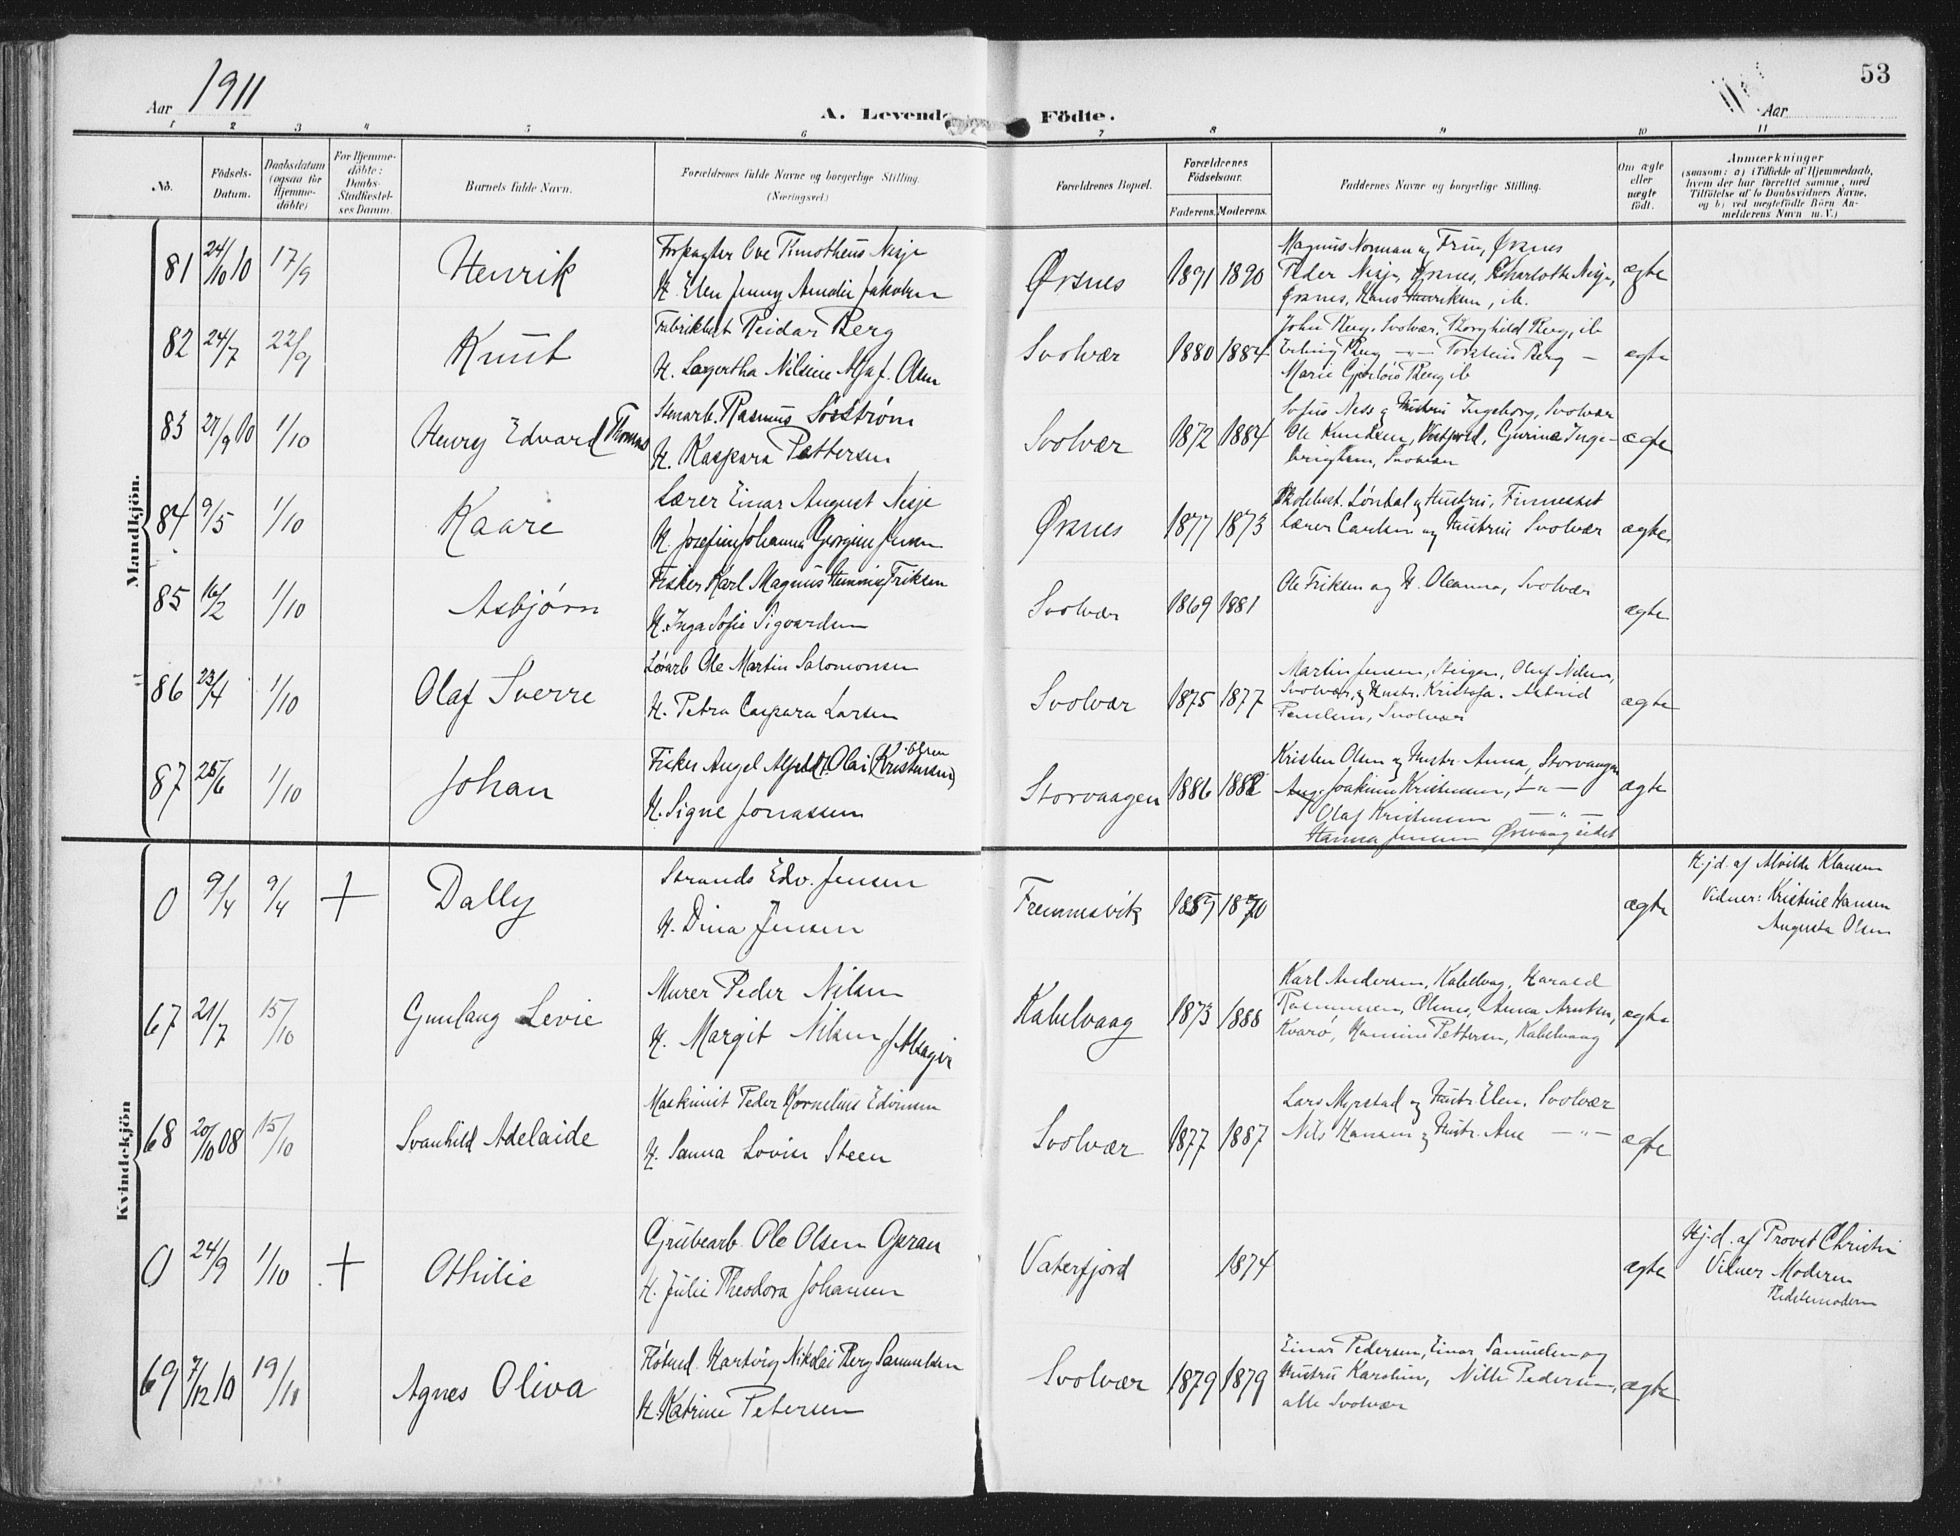 53
Aar 1911
A. Levende Födte.
Aar
1 2 3 4 5 6 7 8 9 10 11
No.
Födsels-Datum.
Daabsdatum (ogsaa for Hjemme-döbte)
For Hjemme-döbte: Daabs-Stadfæstel-ses Datum.
Barnets fulde Navn.
Forældrenes fulde Navne og borgerlige Stilling.
(Næringsvei.)
Forældrenes Bopæl.
Forældrenes Födselsaar.
Faderens. Moderens.
Faddernes Navne og borgerlige Stilling.
Om ægte eller uægte födt.
Anmærkninger
(saasom: a) i Tilfælde af Hjemmedaab,
hvem der har forrettet samme, med
Tilföielse af to Daabsvidners Navne,
og b) ved uægtefödte Börn An-
melderens Navn m.V.)
Mandkjön.
81 24/10 10 17/9 Henrik
Forpagter Ove Timotheus Nisje
H. Elen Jenny Amalie Jakobsen
Ørsnes 1891 1890
Magnus Norman og Frue, Ørsnes
Peder Nisje, Ørsnes, Charlotte Nisje,
Ørsnes, Hans Henriksen, ib.
ægte
82 24/7 22/9 Knut
Fabrikbest. Reidar Berg
H. Lagertha Nilsine Olsen
Svolvær 1880 1884
John Berg, Svolvær, Borghild Berg, ib
Erling Berg -"- Torstein Berg -
Marie Berg ib
ægte
83 27/9 10 1/10 Henry Edvard Thomas
Stenarb. Rasmus Sösström
H. Kaspara Pettersen
Svolvær 1872 1884
Sofus Ness og Hustru Ingeborg, Svolvær
Ole Knudsen, Gurine Inge-
brigtsen, Svolvær
ægte
84 9/5 1/10 Kaare
Lærer Einar August Nisje
H. Josefine Johanna Georgine Jensen
Ørsnes 1877 1873
Lönhal og Hustru, Finneset
Lærer Carlsen og Hustru Svolvær
ægte
85 16/2 1/10 Asbjørn
Fisker Karl Magnus Henning Eriksen
H. Inga Sofie Sigvardsen
Svolvær 1869 1881
Ole Eriksen og H. Oleanna, Svolvær
ægte
86 23/4 1/10 Olaf Sverre
Løsarb Ole Martin Salomonsen
H. Petra Caspara Larsen
Svolvær 1875 1877
Martin Jensen, Steigen, Oluf Nilsen,
Svolvær, og Hustr. Kristofa. Astrid
Svolvær
ægte
87 25/6 1/10 Johan
Fisker Angel Alfred Olai (Kristensen) Olsen
H. Signe Jonassen
Storvaagen 1886 1888
Kristen Olsen og Hustr. Anna, Storvaagen
Joakim Kristensen, -"-
Olaf Kristensen -"-
Hanna Jensen Ørsvaagseidet
ægte
Kvindekjön
0 9/4 9/4 + Dally
Strands. Edv. Jensen
H. Dina Jensen
Fremmesvik 1889 1870
ægte
H.j.d. af Alvilde Klausen
Vidner: Kristine Hansen
Augusta Olsen
67 21/7 15/10 Gunlaug Levie
Murer Peder Nilsen
H. Margit Nilsen
Kabelvaag 1873 1888
Karl Andersen, Kabelvaag, Harald
Rasmussen, Olnes, Anna Arntsen,
Kvarø, Hansine Pettersen, Kabelvaag
ægte
68 20/10 08 15/10 Svanhild Adelaide
Maskinist Peder Kornelius Edvinsen
H. Sanna Lovise Steen
Svolvær 1877 1887
Lars Myrstad og Hustr. Elen. Svolvær
Nils Hansen og Hustr. Ane -"-
ægte
0 24/9 1/10 + Othilie
Grubearb. Ole Olsen Opran
H. Julie Theodora Johansen
Vaterfjord 1874
ægte
Hj.d. af Provst Christie
Vidner Moderen
Bedstemoderen
69 7/12 10 19/11 Agnes Oliva
Hartvig Nikolai Berg Samuelsen
H. Katrine Petersen
Svolvær 1879 1879
Einar Pedersen, Einar Samuelsen og
Hustru Karoline, Pedersen,
alle Svolvær
ægte